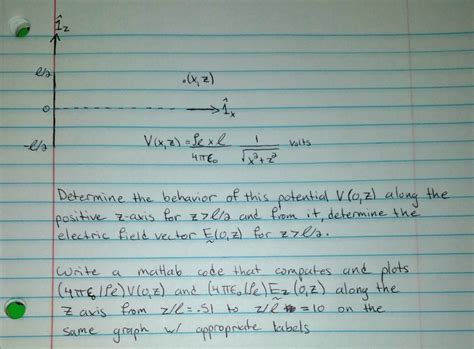 1̂z
ℓ/2
.(x,z)
0
1̂x
-ℓ/2
V(x,z) = ρℓ x ℓ / 4πε₀ 1 / √x²+z² volts
Determine the behavior of this potential V(0,z) along the
positive z-axis for z>ℓ/2 and from it, determine the
electric field vector E(0,z) for z>ℓ/2.
Write a matlab code that computes and plots
(4πε₀/ρℓ)V(0,z) and (4πε₀/ρℓ)Ez(0,z) along the
z axis from z/ℓ=.51 to z/ℓ=10 on the
same graph w/ appropriate labels